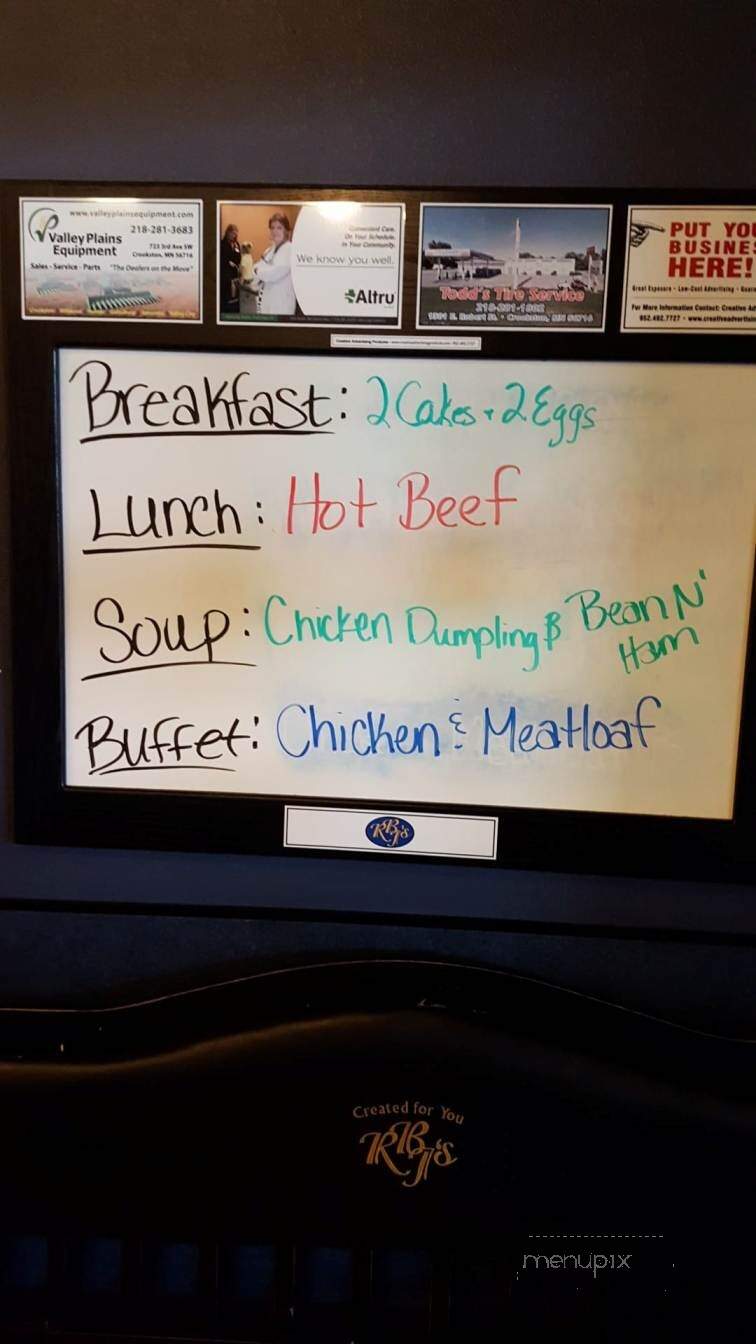 www.valleyplainsequipment.com
218-281-3683
Valley Plains
Equipment
723 3rd Ave SW
Crookston, MN 56716
Sales - Service - Parts "The Dealers on the Move"
Convenient Care.
On Your Schedule.
In Your Community.
We know you well.
Altru
Todd's Tire Service
218-281-1802
1501 E. Robert St. • Crookston, MN 56716
PUT YOU
BUSINE
HERE!
Great Exposure • Low-Cost Advertising •
For More Information Contact: Creative Ad
952.492.7727 • www.creativeadvertisin
Breakfast: 2 Cakes + 2 Eggs
Lunch: Hot Beef
Soup: Chicken Dumpling & Bean N'
Ham
Buffet: Chicken & Meatloaf
RBJ's
Created for You
RBJ's
menupix